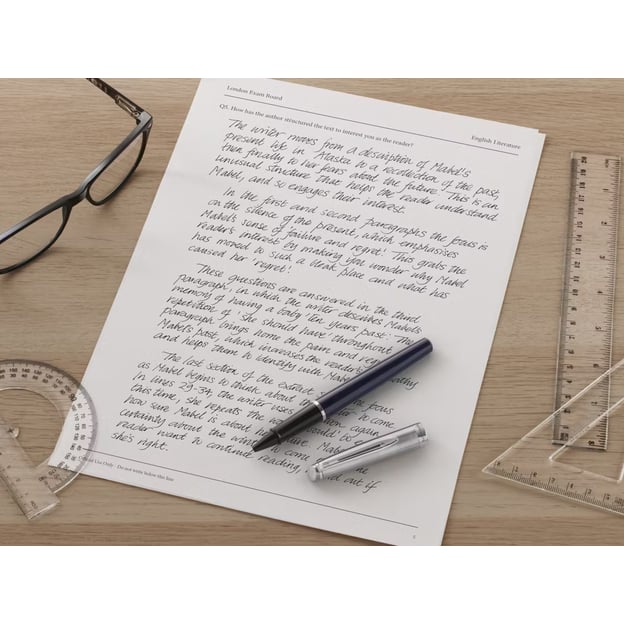 London Exam Board
English Literature
Q5. How has the author structured the text to interest you as the reader?
The writer moves from a description of Mabel's
present life in Alaska to a recollection of the past,
then finally to her fears about the future. This is an
unusual structure that helps the reader understand
Mabel, and so engages their interest.
In the first and second paragraphs the focus is
on the silence of the present, which emphasises
Mabel's sense of 'failure and regret'. This grabs the
reader's interest by making you wonder why Mabel
has moved to such a bleak place and what has
caused her 'regret'.
These questions are answered in the third
paragraph, in which the writer describes Mabel's
memory of having a baby ten years past. The
repetition of 'she should have' throughout
paragraph brings home the pain and
Mabel's past, which increases the reader's
and helps them to identify with Mabel.
The last section of the extract focus
as Mabel begins to think about the to come.
In lines 29-34, the writer uses again,
this time, she repeats the would to
how sure Mabel is about her
certainty about the to come the
reader want to continue reading, out if
she's right.
Use Only - Do not write below this line